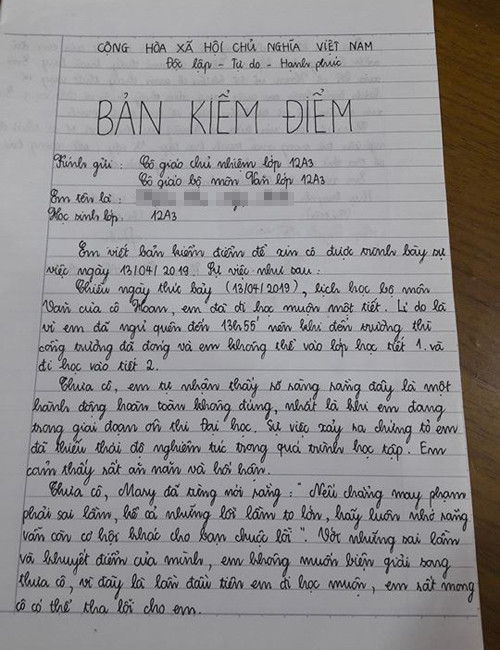 CỘNG HÒA XÃ HỘI CHỦ NGHĨA VIỆT NAM
Độc lập - Tự do - Hạnh phúc
BẢN KIỂM ĐIỂM
Kính gửi : Cô giáo chủ nhiệm lớp 12A3
Cô giáo bộ môn Văn lớp 12A3
Em tên là :
Học sinh lớp : 12A3
Em viết bản kiểm điểm để xin cô được trình bày sự
việc ngày 13/04/2019. Sự việc như sau :
Chiều ngày thức bảy (13/04/2019), lịch học bộ môn
Văn của cô Hoan, em đã đi học muộn một tiết. Lí do là
vì em đã ngủ quên đến 13h55' nên khi đến trường thì
cổng trường đã đóng và em không thể vào lớp học tiết 1. và
đi học vào tiết 2.
Thưa cô, em tự nhận thấy rõ ràng rằng đây là một
hành động hoàn toàn không đúng, nhất là khi em đang
trong giai đoạn ôn thi Đại học. Sự việc xảy ra chứng tỏ em
đã thiếu thái độ nghiêm túc trong quá trình học tập. Em
cảm thấy rất ăn năn và hối hận.
Thưa cô, Mary đã từng nói rằng : " Nếu chẳng may phạm
phải sai lầm, kể cả những lỗi lầm to lớn, hãy luôn nhớ rằng
vẫn còn cơ hội khác cho bạn chuộc lỗi ". Với những sai lầm
và khuyết điểm của mình, em không muốn biện giải song
thưa cô, vì đây là lần đầu tiên em đi học muộn, em rất mong
cô có thể tha lỗi cho em.